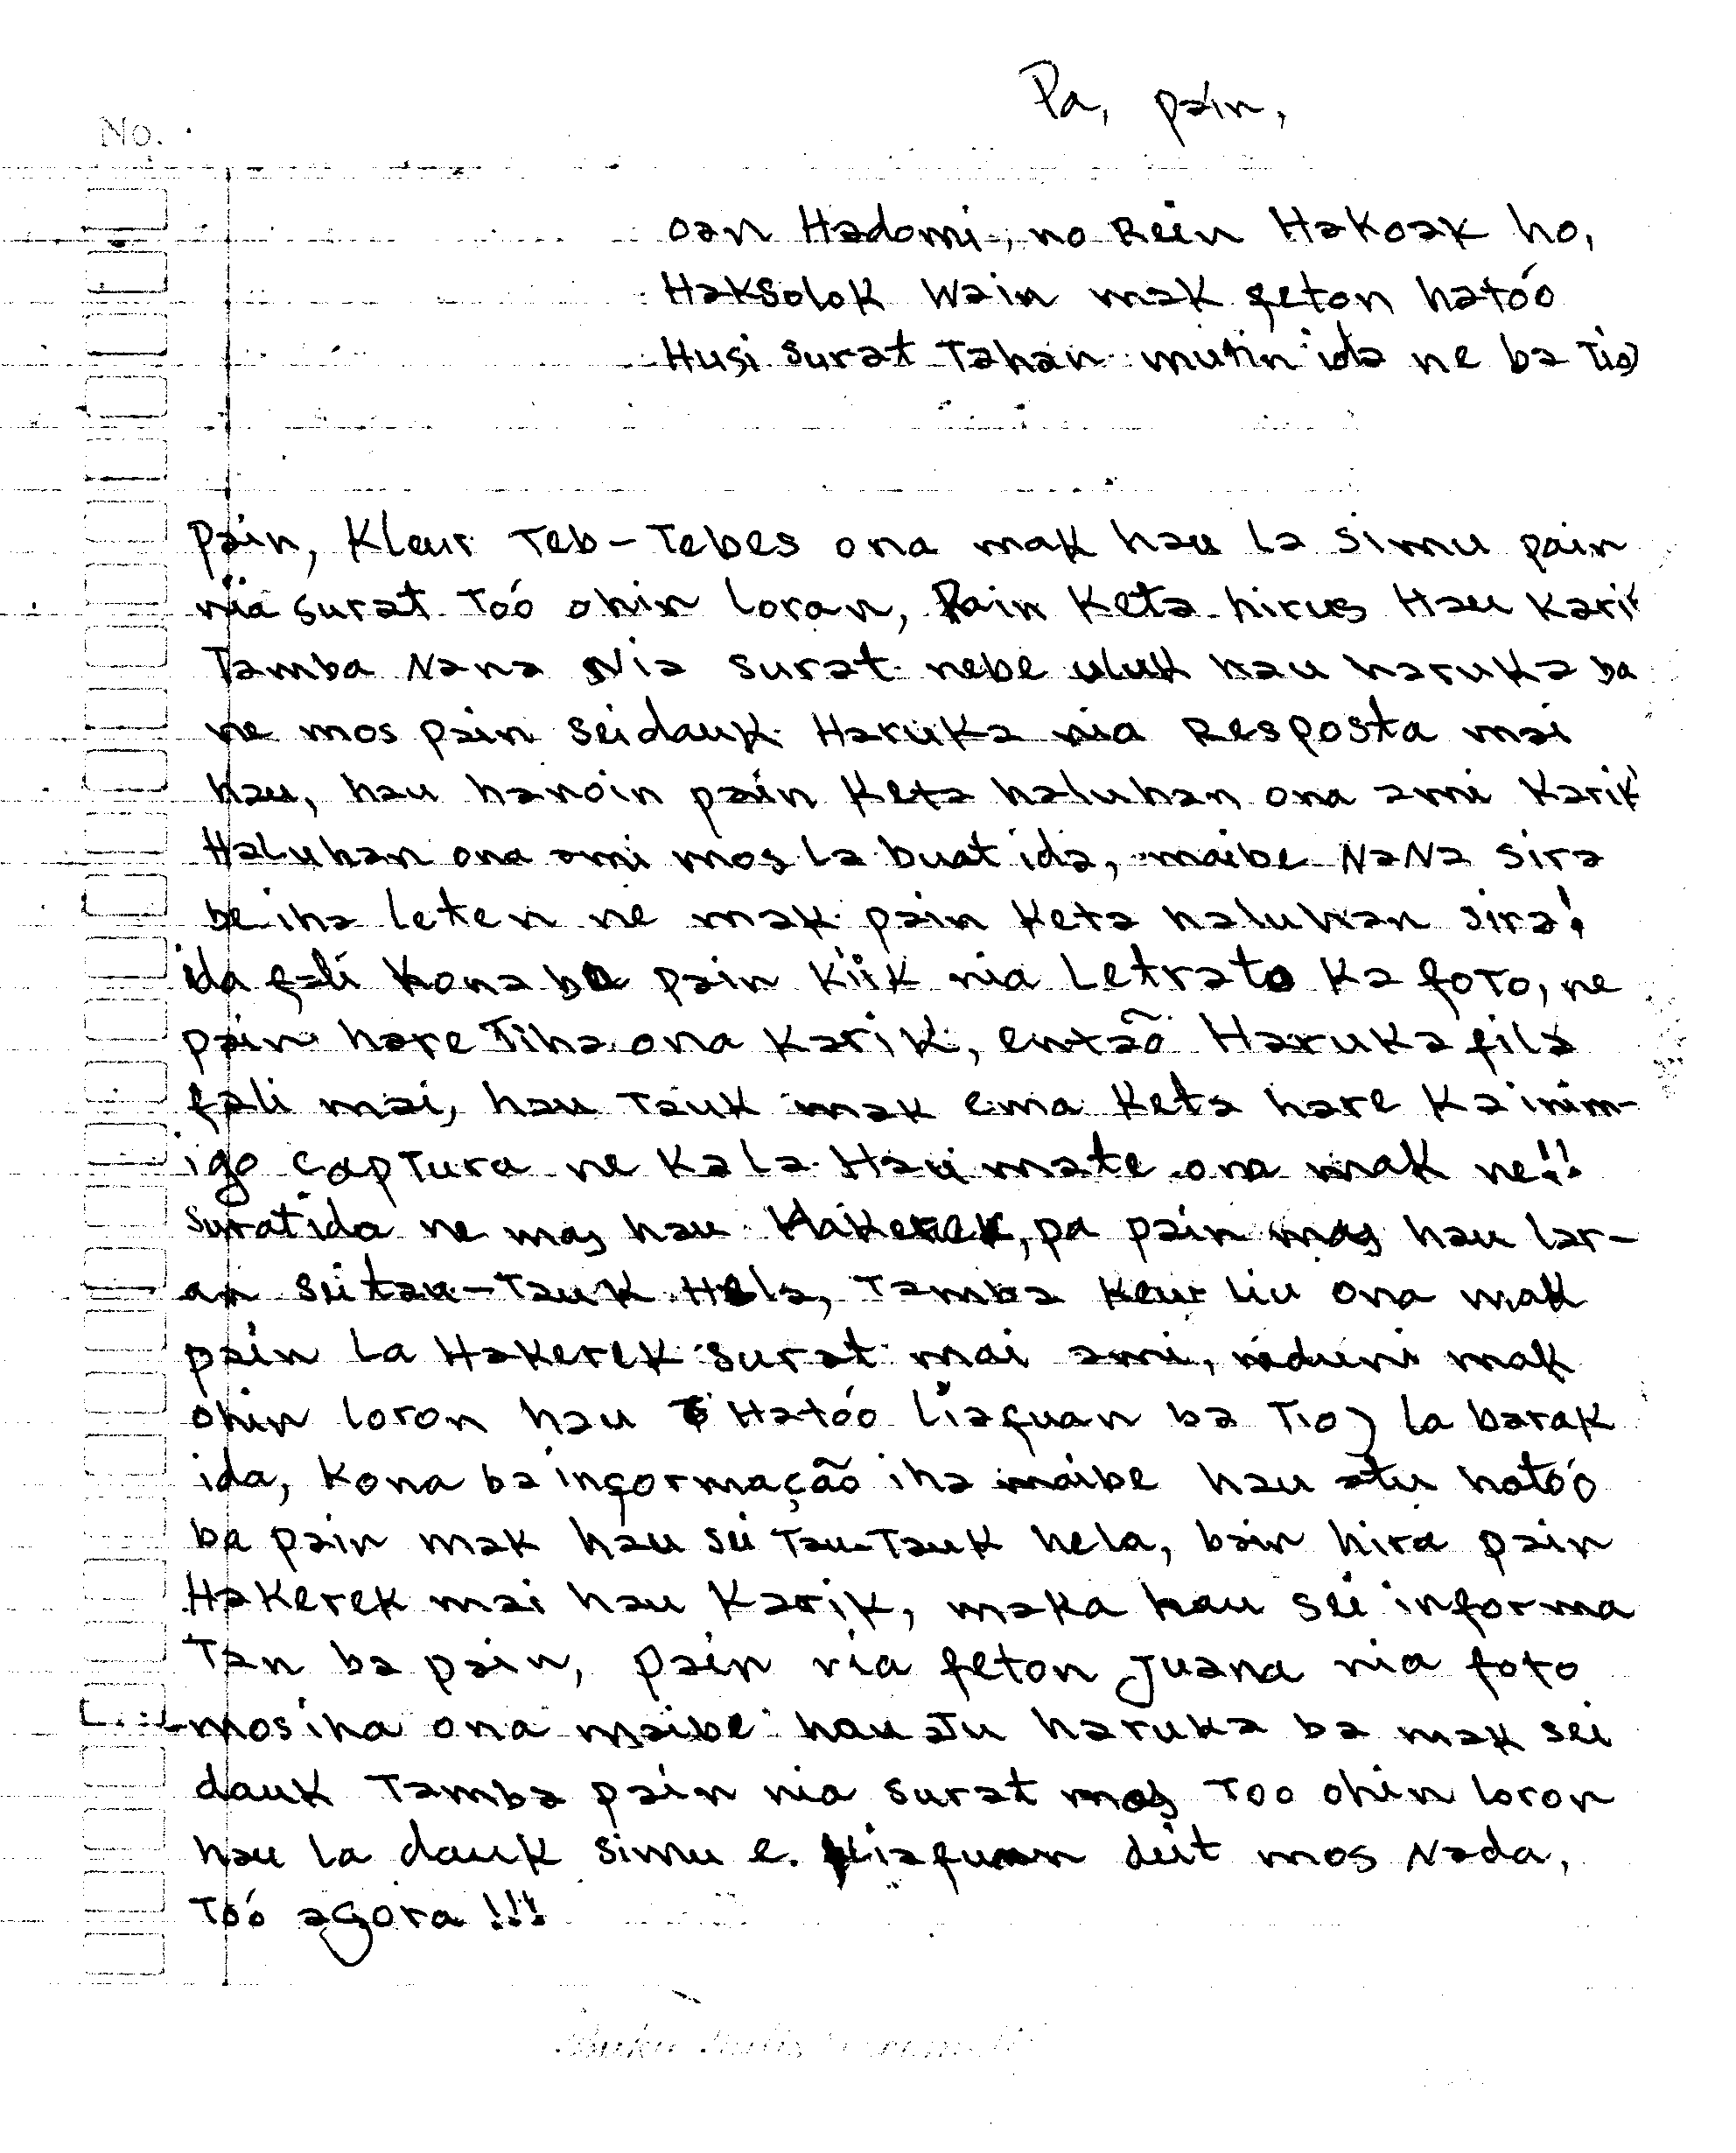 Pa, pain,
No.
oan Hadomi, no Rein Hakoak ho,
Haksolok Wain mak feton hatóo
Husi surat Tahan mutin ida ne ba Tio
Pain, Kleur Teb-Tebes ona mak hau la simu pain
nia surat Toó ohin loran, Pain Keta hirus Hau Karik
Tamba Nana Nia surat nebe uluk hau haruka ba
ne mos pain seidauk Haruka nia Resposta mai
hau, hau hanoin pain Keta haluhan ona ami Karik
Haluhan ona ami mos la buat ida, maibe NaNa sira
be iha leten ne mak pain Keta haluhan sira!
ida fali Kona ba pain Kiik nia Letrato Ka foTo, ne
pain hare Tiha ona Karik, então Haruka fila
fali mai, hau Tauk mak ema Keta hare Ka inim-
igo capTura ne Ka la Hau mate ona mak ne!!
surat ida ne mos hau Hakerek, pa pain mos hau lar-
an sei tau-Tauk Hela, Tamba Keur liu ona mak
pain La Hakerek surat mai ami, neduni mak
ohin loron hau Hatóo liafuan ba Tio, la barak
ida, Kona ba informação iha maibe hau atu hatóo
ba pain mak hau sei Tau-Tauk hela, bain hira pain
Hakerek mai hau Karik, maka hau sei informa
Tan ba pain, pain nia feton Juana nia foto
mos iha ona maibe hau aTu haruka ba mak sei
dauk Tamba pain nia surat mos Too ohin loron
hau la dauk simu e. liafuan deit mos Nada,
Tóó agora !!!